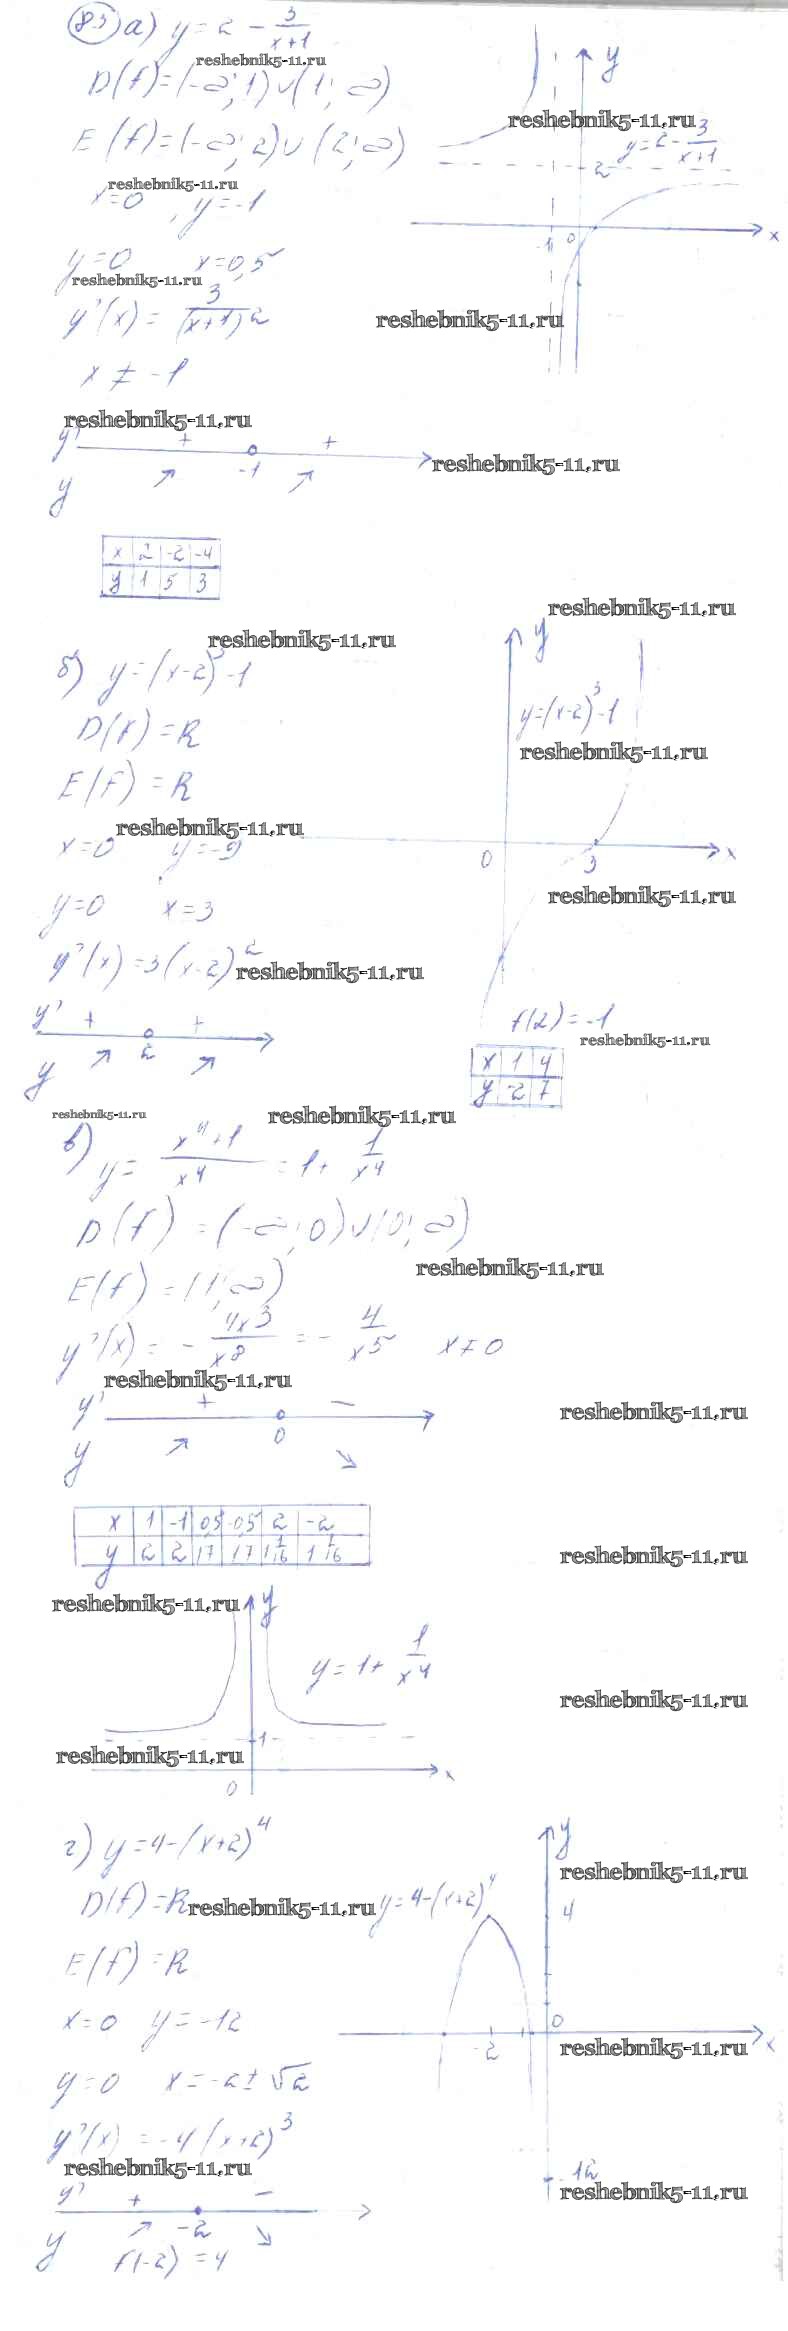 83 а) y = 2 - 3/(x+1)
reshebnik5-11.ru
D(f)=(-∞; 1)∪(1; ∞)
E(f)=(-∞; 2)∪(2; ∞)
reshebnik5-11.ru
x=0, y=-1
y=0 x=0,5
reshebnik5-11.ru
y'(x) = 3/(x+1)2
x ≠ -1
reshebnik5-11.ru
y
reshebnik5-11.ru
y=2-3/(x+1)
2
-1 0 x
reshebnik5-11.ru
y' + + 
-1
reshebnik5-11.ru
y ↗ ↗
x 2 -2 -4
y 1 5 3
reshebnik5-11.ru
reshebnik5-11.ru
б) y=(x-2)³-1
D(f)=R
E(f)=R
reshebnik5-11.ru
x=0 y=-9
y=0 x=3
y'(x)=3(x-2)²
reshebnik5-11.ru
y
y=(x-2)³-1
reshebnik5-11.ru
0 3 x
reshebnik5-11.ru
y' + +
2
y ↗ ↗
f(2)=-1
reshebnik5-11.ru
x 1 4
y -2 7
reshebnik5-11.ru
reshebnik5-11.ru
в) y = (x⁴+1)/x⁴ = 1+ 1/x⁴
D(f) = (-∞; 0)∪(0; ∞)
reshebnik5-11.ru
E(f)=(1; ∞)
y'(x) = - 4x³/x⁸ = - 4/x⁵ x≠0
reshebnik5-11.ru
y' + -
0
reshebnik5-11.ru
y ↗ ↘
x 1 -1 0,5 -0,5 2 -2
y 2 2 17 17 1 1/16 1 1/16
reshebnik5-11.ru
reshebnik5-11.ru
y
y=1+ 1/x⁴
reshebnik5-11.ru
1
reshebnik5-11.ru
0 x
г) y=4-(x+2)⁴
D(f)=R
reshebnik5-11.ru
E(f)=R
x=0 y=-12
y=0 x=-2±√2
y'(x)=-4(x+2)³
reshebnik5-11.ru
y
reshebnik5-11.ru
y=4-(x+2)⁴
4
0
-2 x
reshebnik5-11.ru
-12
reshebnik5-11.ru
y' + -
-2
y ↗ ↘
f(-2)=4